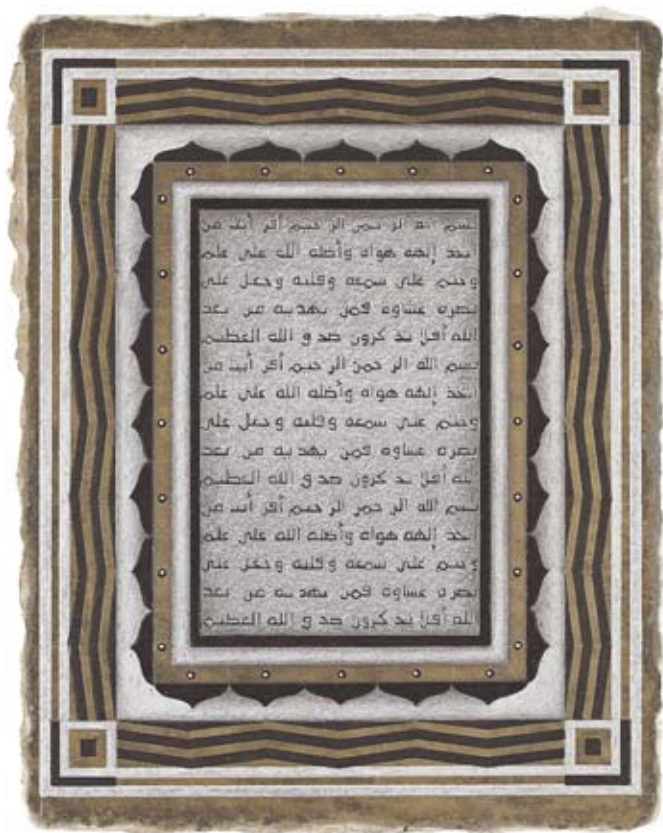 بسم الله الرحمن الرحيم أفرأيت من
اتخذ إلهه هواه وأضله الله على علم
وختم على سمعه وقلبه وجعل على
بصره غشاوه فمن يهديه من بعد
الله أفلا تذكرون صدق الله العظيم
بسم الله الرحمن الرحيم أفرأيت من
اتخذ إلهه هواه وأضله الله على علم
وختم على سمعه وقلبه وجعل على
بصره غشاوه فمن يهديه من بعد
الله أفلا تذكرون صدق الله العظيم
بسم الله الرحمن الرحيم أفرأيت من
اتخذ إلهه هواه وأضله الله على علم
وختم على سمعه وقلبه وجعل على
بصره غشاوه فمن يهديه من بعد
الله أفلا تذكرون صدق الله العظيم